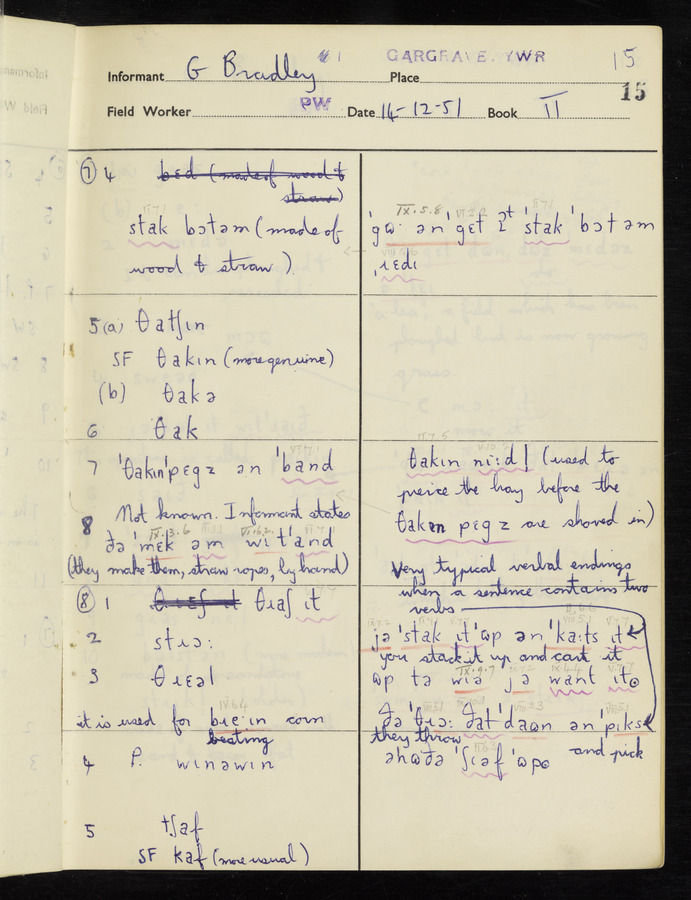 GARGRAVE. YWR 15
Informant G Bradley Place 15
Field Worker PW Date 14-12-51 Book II
⑦ 4 bɛd (made of wood & straw)
stak bɔtəm (made of
wood & straw)
IX.5.8
ən 'gɛt 'stak 'bɔtəm
ˌɹɛdɪ
5 (a) θatʃɪn
SF θakɪn (more genuine)
(b) θakə
6 θak
7 'θakɪn'pɛgz ən 'band
θakɪn ni:dl (used to
peirce the hay before the
θakɪn pɛgz are shoved in)
8 Not known. Informant states
ðə 'mɛk əm wɪ t'and
(they make them, straw ropes, by hand)
Very typical verbal endings
when a sentence contains two
verbs
⑧ 1 θɪaʃ ɪt
2 stɪɔ:
3 θɪɛəl
it is used for bɪɛ:ɪn corn
beating
4 P. wɪnəwɪn
jə 'stak ɪt 'ʊp ən 'ka:ts ɪt
you stack it up and cart it
ʊp tə wɪə jə want ɪt
ðə 'θɪɔ: ðat 'daʊn ən 'pɪks
they throw and pick
'ʊp
5 tʃaf
SF kaf (more usual)